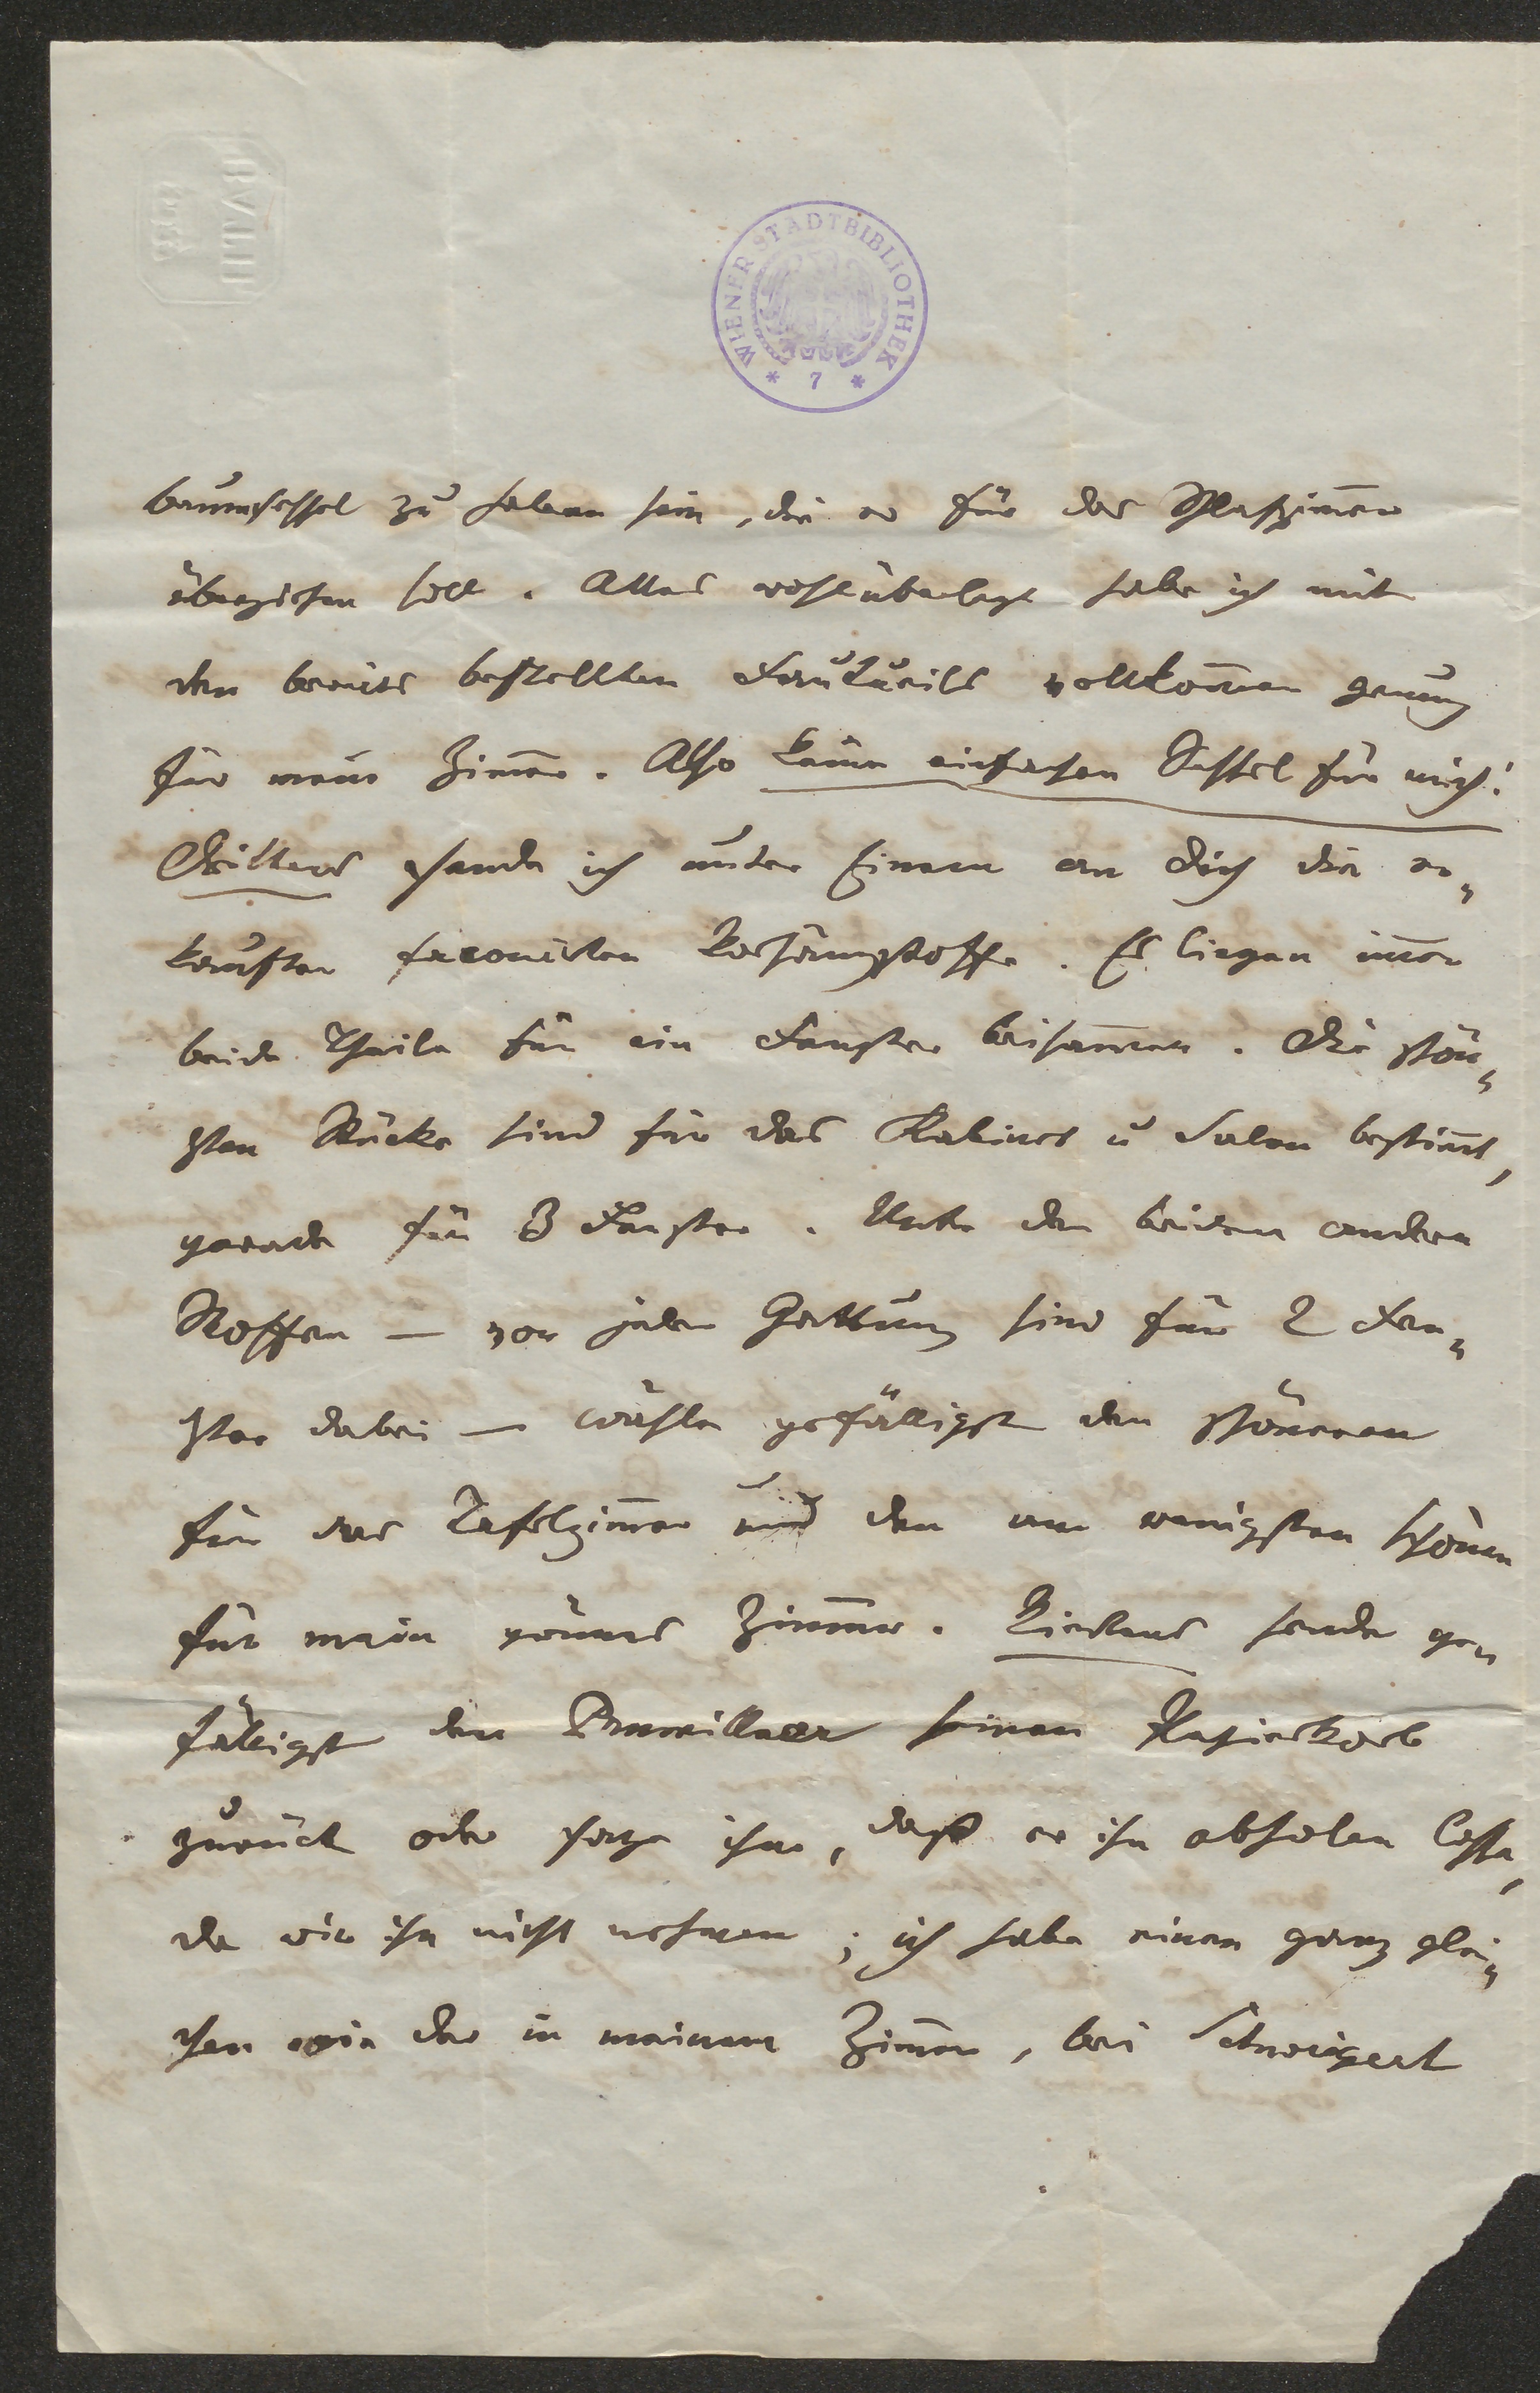 WIENER STADTBIBLIOTHEK
* 7 *
baumsessel zu haben sein, die er für das Schlafzim̄er
überziehen soll. Alles wohlüberlegt habe ich mit
den bereits bestellten Fauteuils vollkom̄en genug
für mein Zim̄er. Also keine einfachen Sessel für mich!
Drittens sende ich unter Einem an Dich die er=
kauften faconirten Vorhangstoffe. Es liegen im̄er
beide Theile für ein Fenster beisam̄en. Die schön=
sten Stücke sind für das Kabinet u Salon bestim̄t,
gerade für 3 Fenster. Unter den beiden andern
Stoffen — von jeder Gattung sind für 2 Fen=
ster dabei — wähle gefälligst den schöneren
für das Tafelzim̄er und den am wenigsten schönen
für mein grünes Zimmer. Viertens sende ge=
fälligst den seinen Papierkorb
zurück oder sage ihm, daß er ihn abholen lasse,
da wir ihn nicht nehmen; ich habe einen ganz glei=
chen wie der in meinem Zim̄er, bei